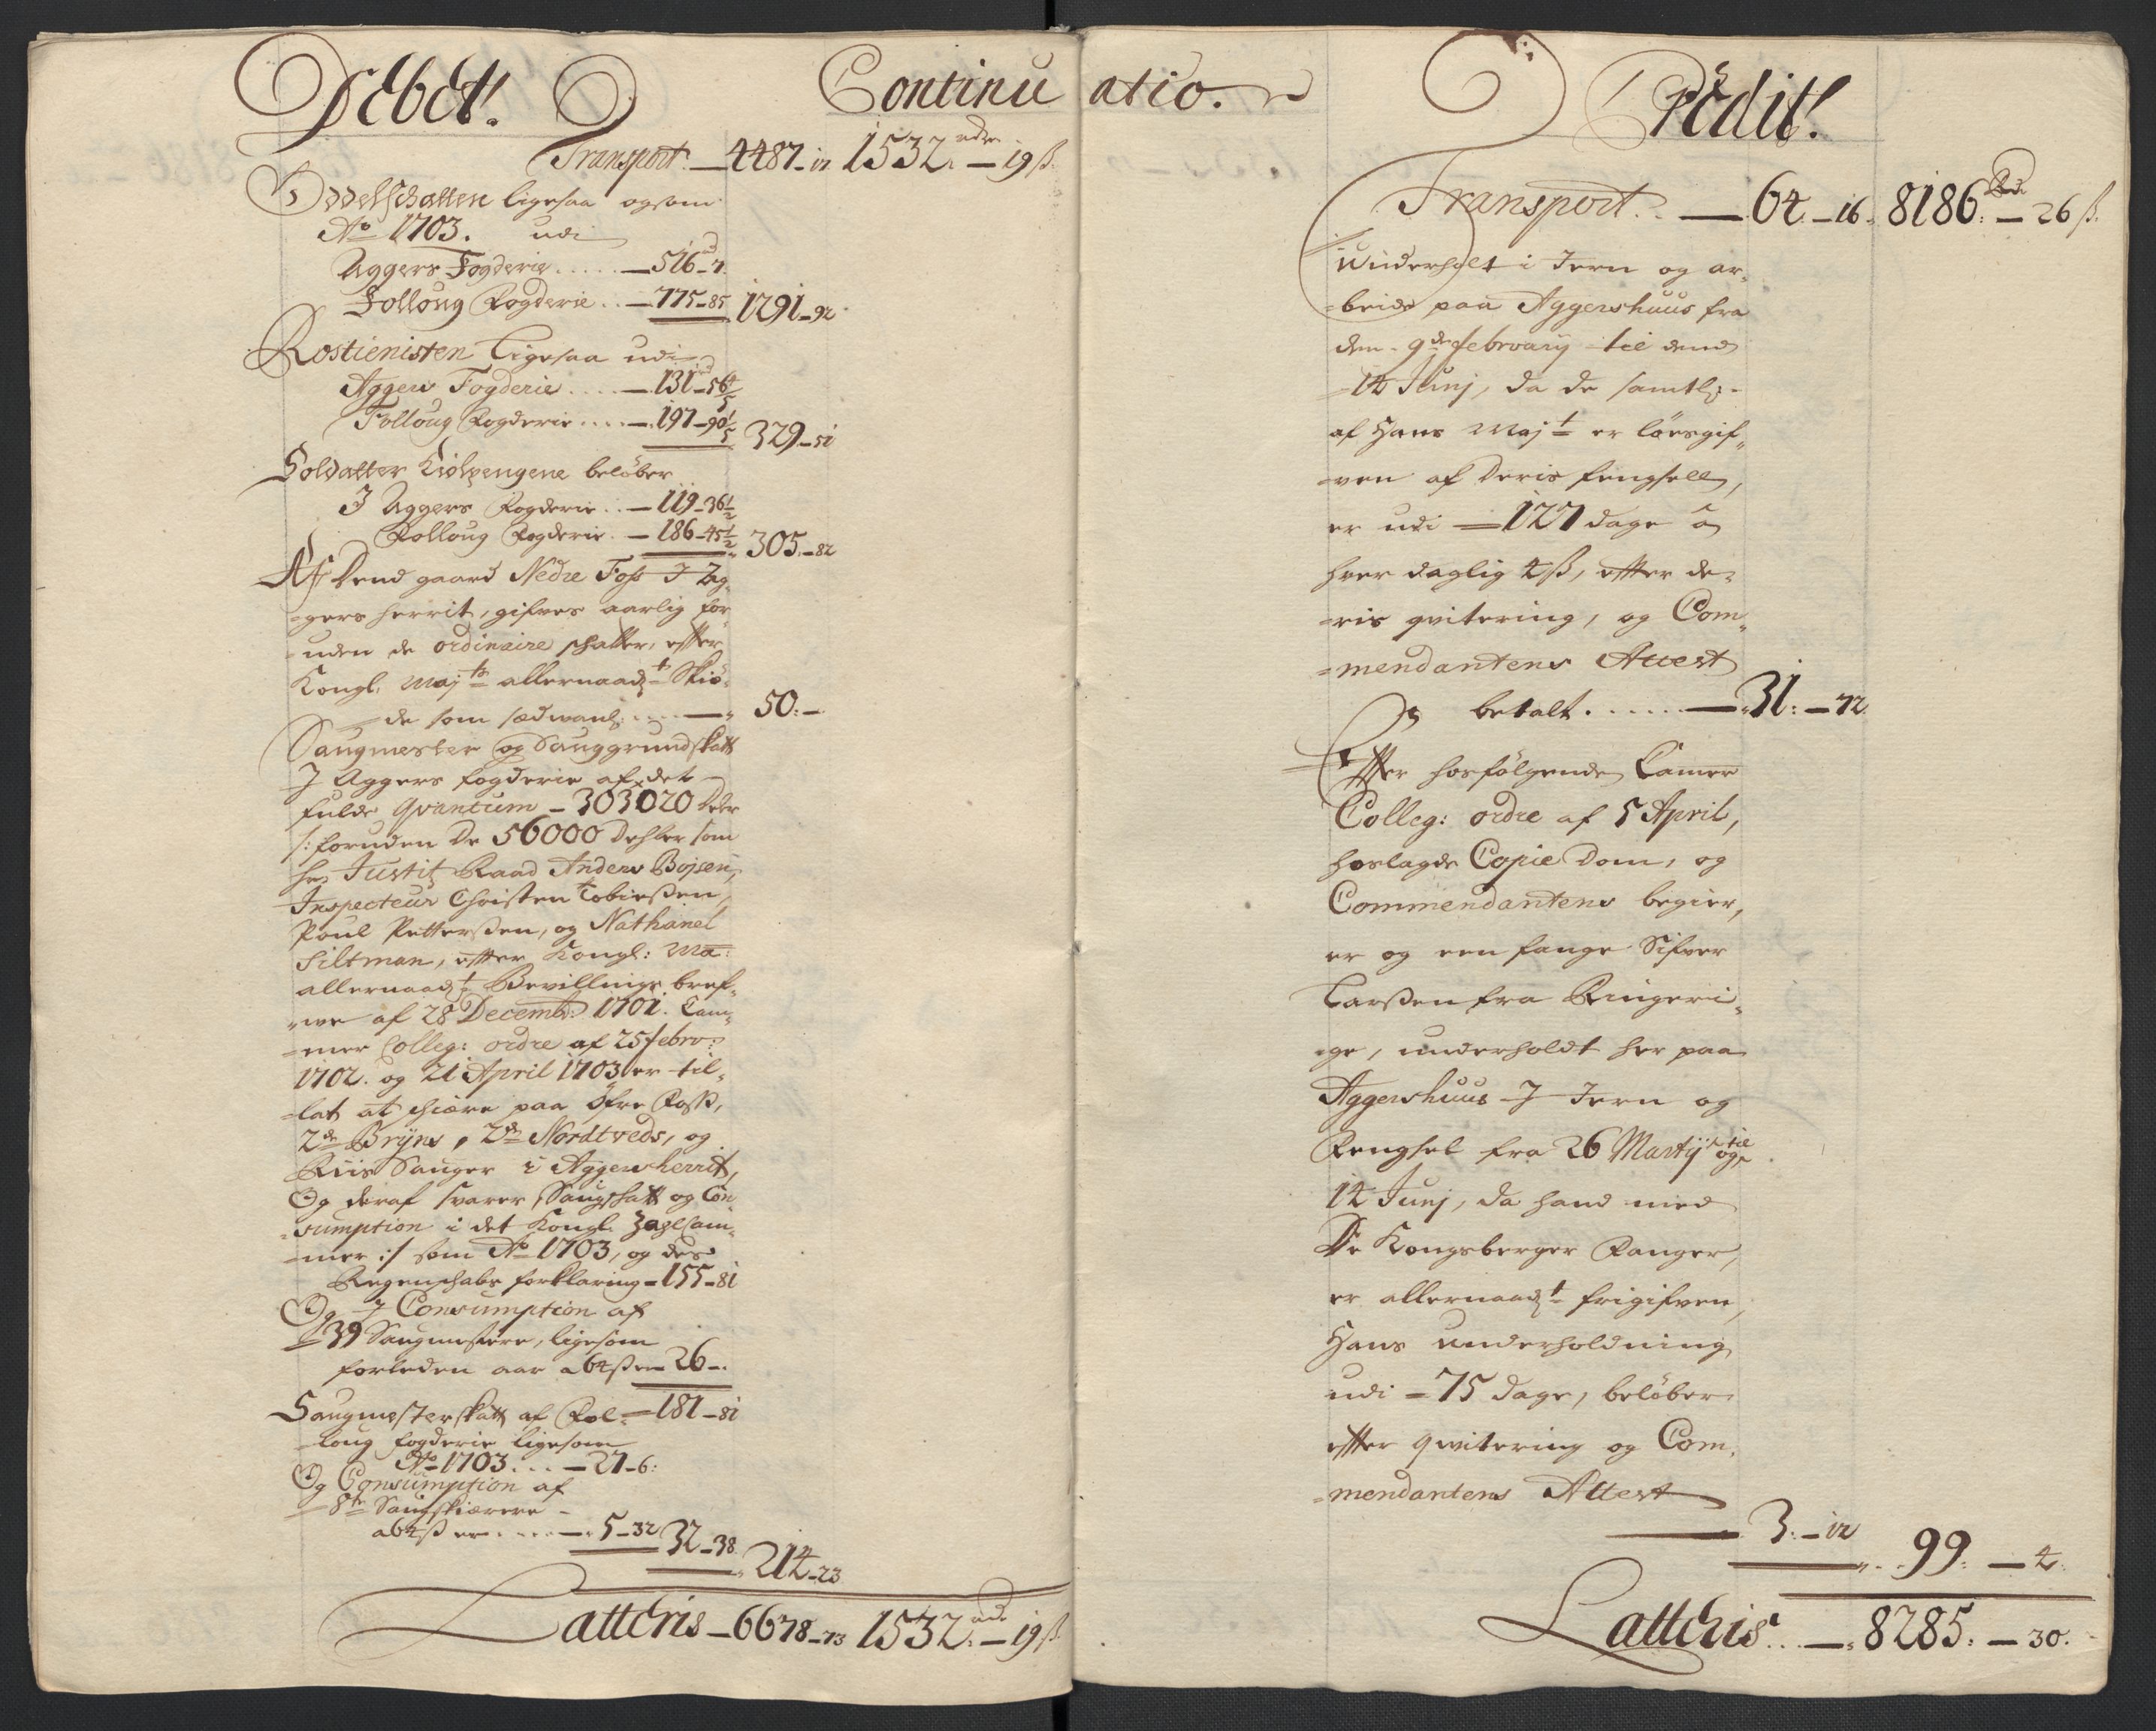 Debet!
Continuatio.
Transport. — 4487 - 12 1532 rdr — 19 ß.
Odelschatten ligesaa ogsom
Ao 1703. udi
Aggers Fogderie ..... — 516 - 7.
Folloug Fogderie .. — 775 - 85 1291 - 92
Rostienisten Ligesaa udi
Aggers Fogderie ..... — 131 - 56 4/5
Folloug Fogderie .... — 197 - 90 1/5 329 - 51
Soldatter Kiolpengene beløber
I Aggers Fogderie .. — 119 - 36 1/2
Folloug Fogderie. — 186 - 45 1/2 305 - 82
Af Dend gaard Nedre Foss I Ag¬
-gers herrit, gifves aarlig for¬
-uden de ordinaire schatter, effter
Kongl. Maj ts allernaad t Skiø¬
de som sædvanl: .... — 50: —
Saugmester og Sauggrundskatt
I Aggers fogderie af det
fulde qvantum - 303020 Deler
/: foruden De 56000 Dehler som
hr Justitz Raad Anders Bojsen,
Inspecteur Christen Tobiessen,
Poul Petterssen, og Nathanel
Siltman, effter Kongl: Ma:
allernaad t Bevillings bref¬
-we af 28 Decemb: 1701. Cam¬
-mer Colleg: ordre af 25 febro:
1702. og 21 April 1703 er til¬
-lat at schiære paa Øfre Foss,
2de Bryns, 2de Nordtveds, og
Riis Sauger i Aggersherrit,
Og deraf svarer Saugschatt og Con¬
-sumption i det Kongl. Zahlcam¬
-mer :/ som Ao 1703, og des
Regenschabs forklaring - 155 - 81
Og I Consumption af
39 Saugmestere, ligesom
forleden aar a 64 ß er 26 -.
Saugmesterskatt af Fol¬ — 181 - 81
-loug fogderie ligesom
Ao 1703 ... — 27 - 6:
Og Consumption af
8te Saugskiærere -
a 64 ß er .... — 5 - 32 32 - 38.
214 - 23
Latteris — 6678 - 73 1532 rdr. — 19 ß
Credit!
Transport. — 64 - 16. 8186 Rdr: — 26 ß.
Underholt i Jern og ar¬
-beide paa Aggershuus fra
den 9de february til dend
14 Junj, da de samtl:
af Hans Maj t er løesgif¬
-ven af Deris fengsell,
er udi — 127 dage â
hver daglig 4 ß, effter de¬
-ris qvitering, og Com¬
-mendantens Attest
betalt. ..... — 31: — 72
Effter hosfølgende Camer
Colleg: ordre af 5 April,
hoslagde Copie Dom, og
Commendantens begier,
er og een fange Sifver
Larssen fra Ringeri¬
-ge, underholdt her paa
Aggershuus I Jern og
Fengsel fra 26 Martij og til
14 Junj, da hand med
De Kongsberger Fanger,
er allernaad t frigifven,
Hans underholdning
udi - 75 dage, beløber
effter qvitering og Com¬
-mendantens Attest
— 3: — 12
— 99: — 4.
Latteris ... — 8285: — 30.